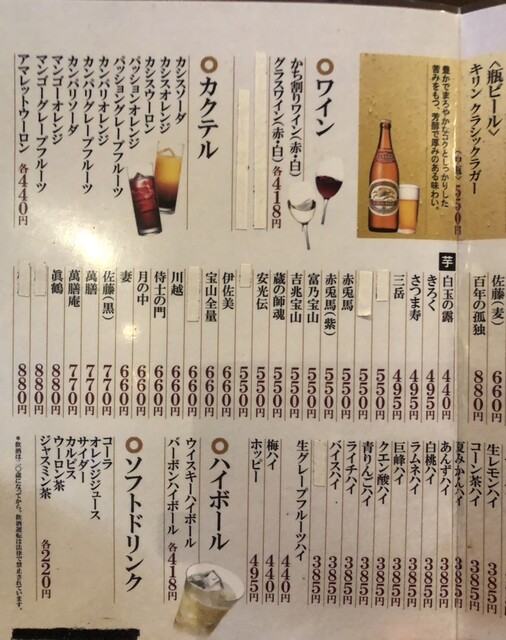 〈瓶ビール〉
キリン クラシックラガー
〈中瓶〉550円
豊かでまろやかなコクとしっかりした
苦みをもつ、芳醇で厚みのある味わい。
ワイン
かち割りワイン(赤・白)
グラスワイン(赤・白) 各418円
カクテル
カシスソーダ
カシスオレンジ
カシスウーロン
パッションオレンジ
パッショングレープフルーツ
カンパリオレンジ
カンパリグレープフルーツ
カンパリソーダ
マンゴーオレンジ
マンゴーグレープフルーツ
アマレットウーロン 各440円
佐藤(麦) 660円
百年の孤独 880円
芋
白玉の露 440円
きろく 495円
さつま寿 495円
三岳 495円
550円
550円
赤兎馬 550円
赤兎馬(紫) 550円
富乃宝山 550円
吉兆宝山 550円
蔵の師魂 550円
安光伝 550円
550円
伊佐美 660円
宝山全量 660円
660円
川越 660円
侍士の門 660円
月の中 660円
妻 660円
佐藤(黒) 770円
萬膳 770円
萬膳庵 770円
眞鶴 880円
880円
880円
生レモンハイ 385円
コーン茶ハイ 385円
夏みかんハイ 385円
あんずハイ 385円
白桃ハイ 385円
ラムネハイ 385円
巨峰ハイ 385円
クエン酸ハイ 385円
青りんごハイ 385円
ライチハイ 385円
バイスハイ 385円
385円
生グレープフルーツハイ 440円
梅ハイ 440円
ホッピー 495円
ハイボール
ウイスキーハイボール
バーボンハイボール 各418円
ソフトドリンク
コーラ
オレンジジュース
サイダー
カルピス
ウーロン茶
ジャスミン茶 各220円
*飲酒は二〇歳になってから。飲酒運転は法律で禁止されています。